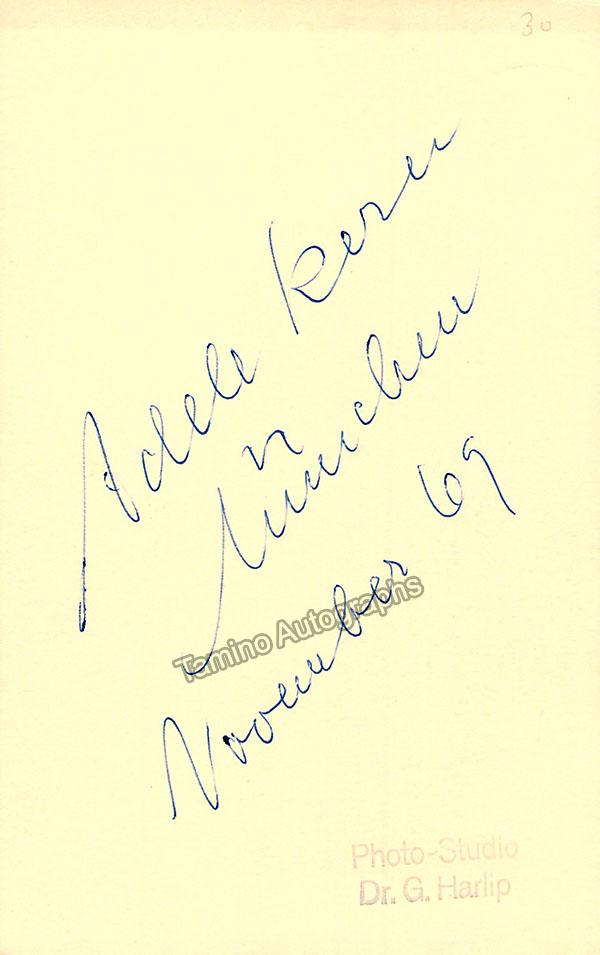 30
Adele Kern
München
November 69
Tamino Autographs
Photo-Studio
Dr. G. Harlip